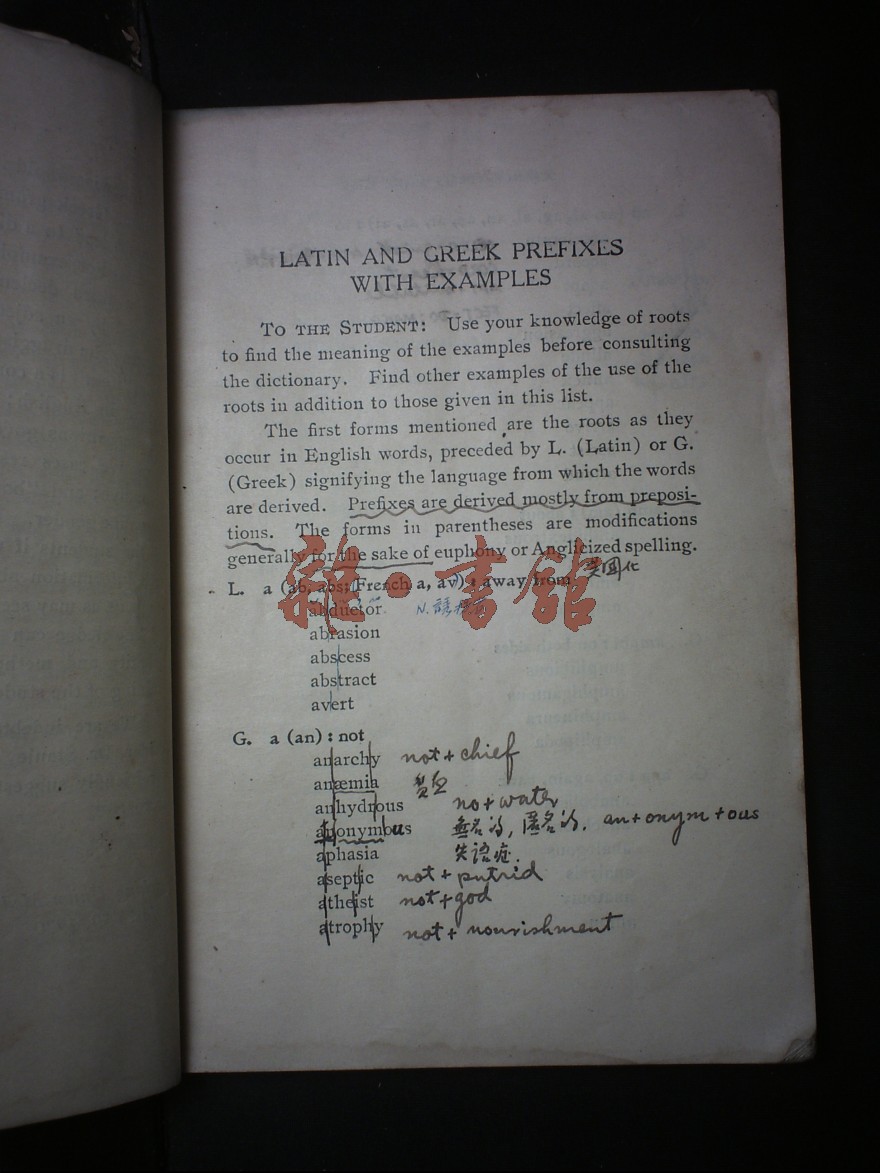 LATIN AND GREEK PREFIXES
WITH EXAMPLES
TO THE STUDENT: Use your knowledge of roots
to find the meaning of the examples before consulting
the dictionary. Find other examples of the use of the
roots in addition to those given in this list.
The first forms mentioned are the roots as they
occur in English words, preceded by L. (Latin) or G.
(Greek) signifying the language from which the words
are derived. Prefixes are derived mostly from preposi-
tions. The forms in parentheses are modifications
generally for the sake of euphony or Anglicized spelling.
英国化
雜·書館
L. a (ab, abs; French a, av) : away from
abductor N. 誘
abrasion
abscess
abstract
avert
G. a (an) : not
anarchy not + chief
anæmia 貧血
anhydrous no + water
anonymous 無名的, 匿名的. an + onym + ous
aphasia 失語症.
aseptic not + putrid
atheist not + god
atrophy not + nourishment